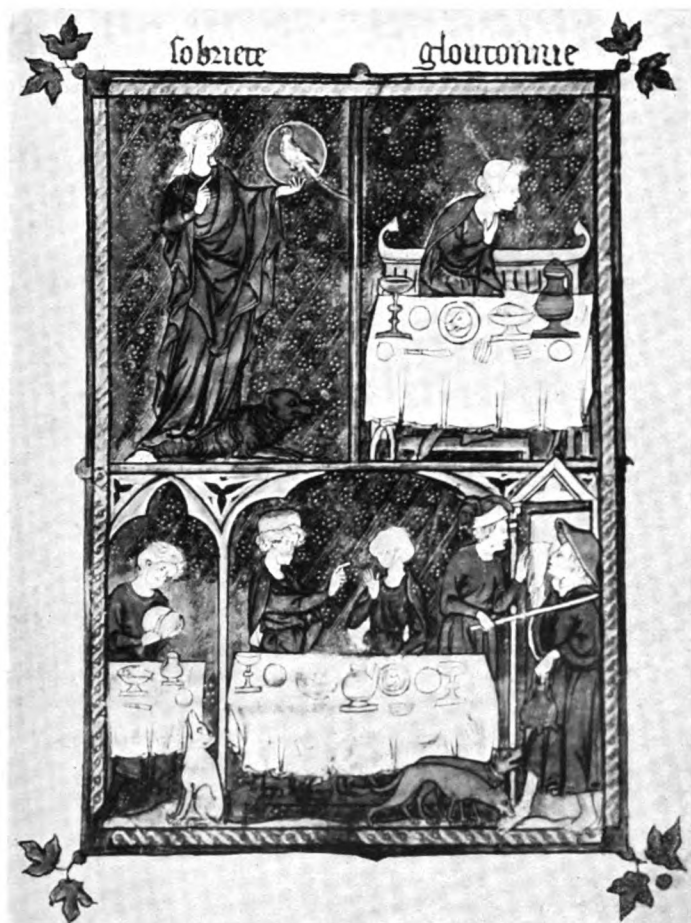 sobriete gloutonnie